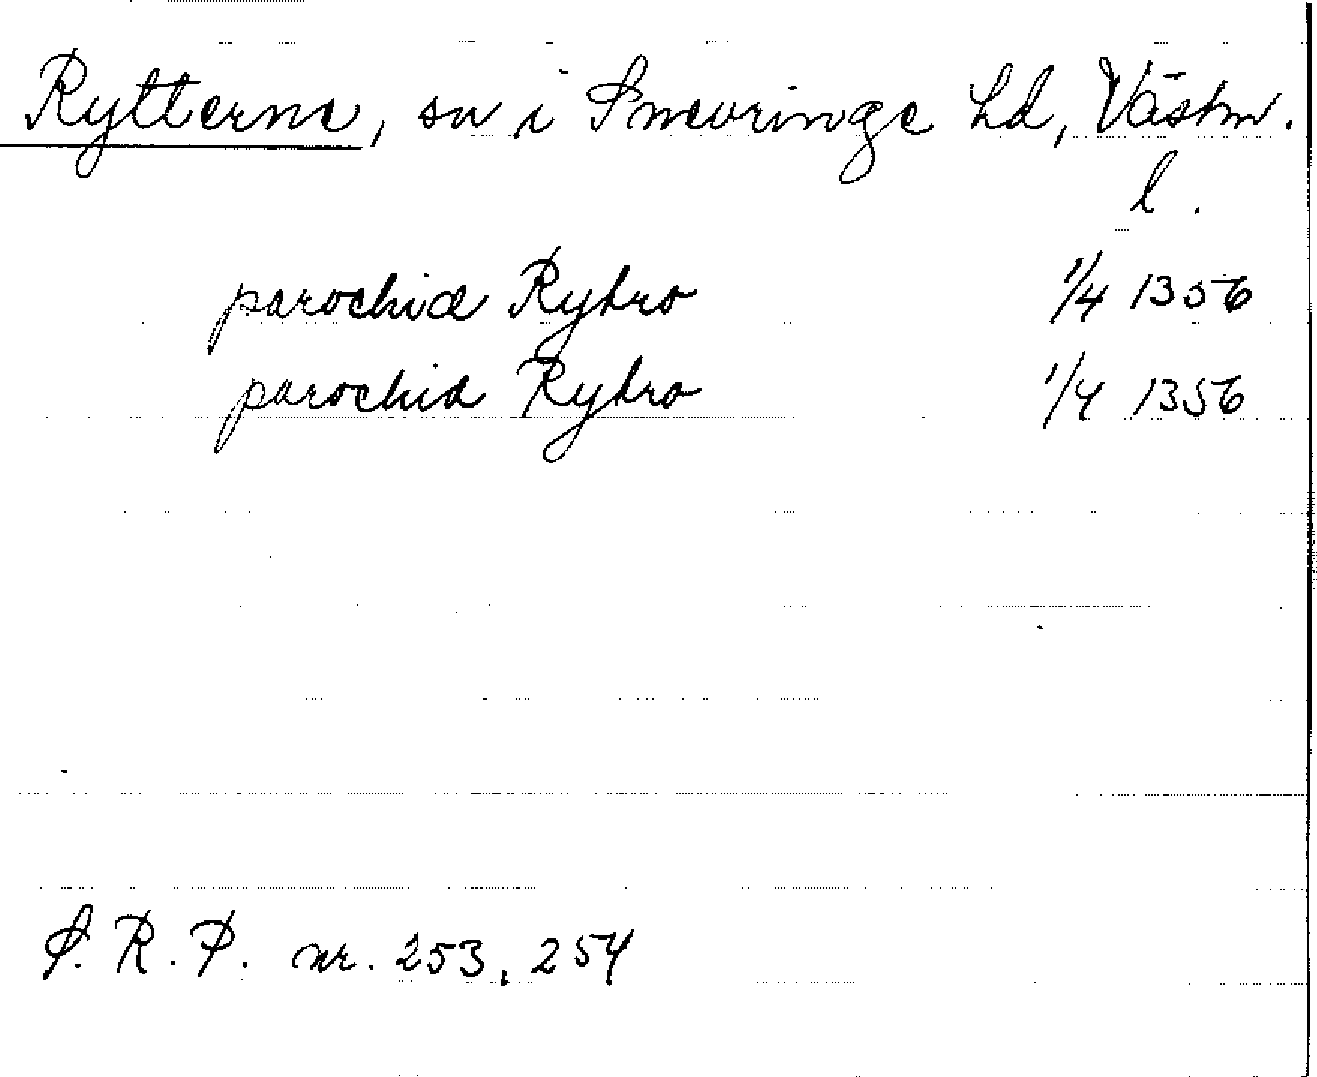 Rytterne, sn i Snevringe hd, Västm.
l.
parochia Rytro 1/4 1356
parochia Rytro 1/4 1356
S.R.P. nr. 253, 254